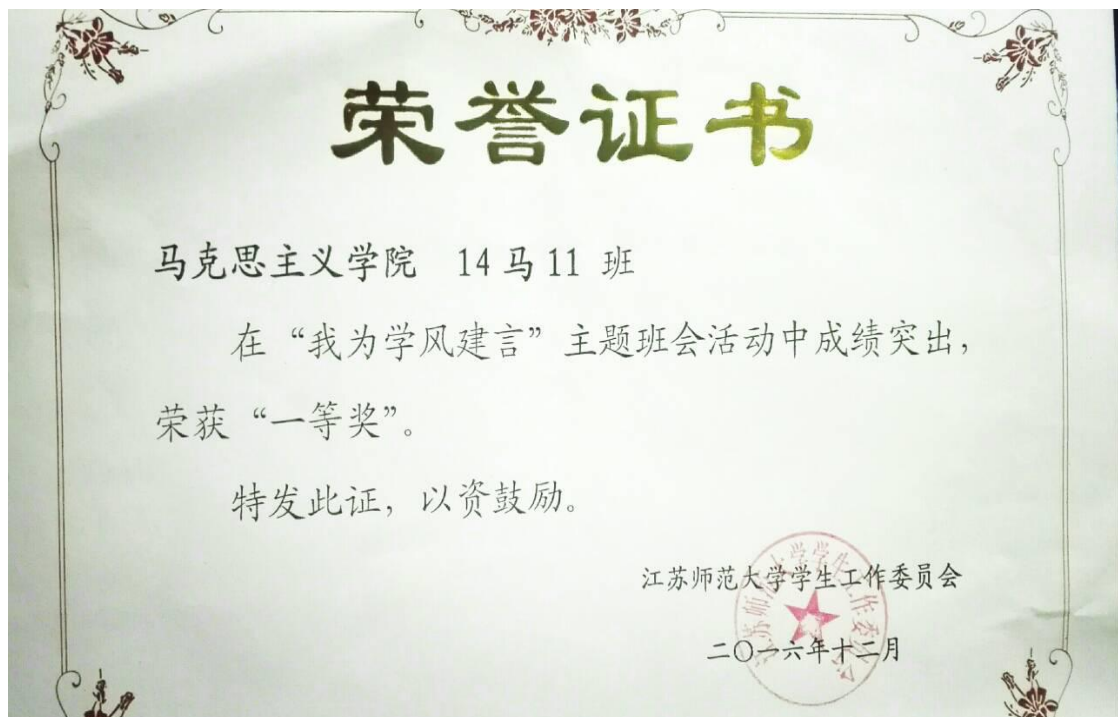 荣誉证书
马克思主义学院 14马11 班
在“我为学风建言”主题班会活动中成绩突出，
荣获“一等奖”。
特发此证，以资鼓励。
江苏师范大学学生工作委员会
二〇一六年十二月
江苏师范大学学生工作委员会